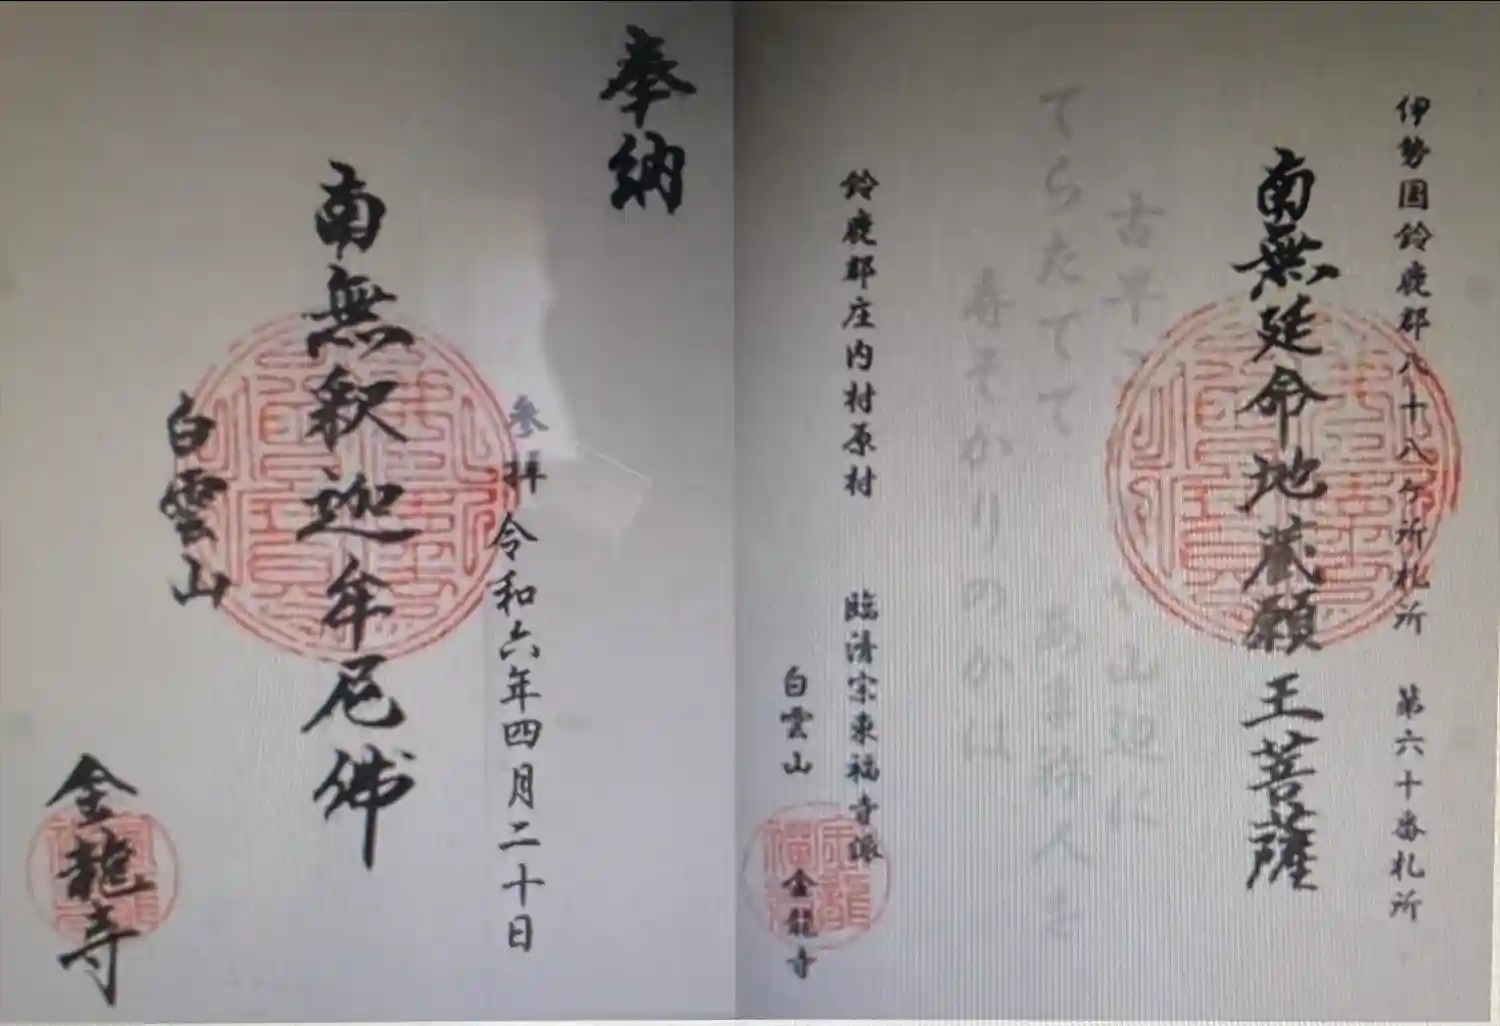 伊勢国鈴鹿郡八十八ケ所札所　第六十番札所
南無延命地蔵願王菩薩
山辺に
てらたてて　あま
そかりのかは
鈴鹿郡庄内村原村　臨済宗東福寺派
白雲山　金龍寺
奉納
参拝　令和六年四月二十日
南無釈迦牟尼佛
白雲山
金龍寺